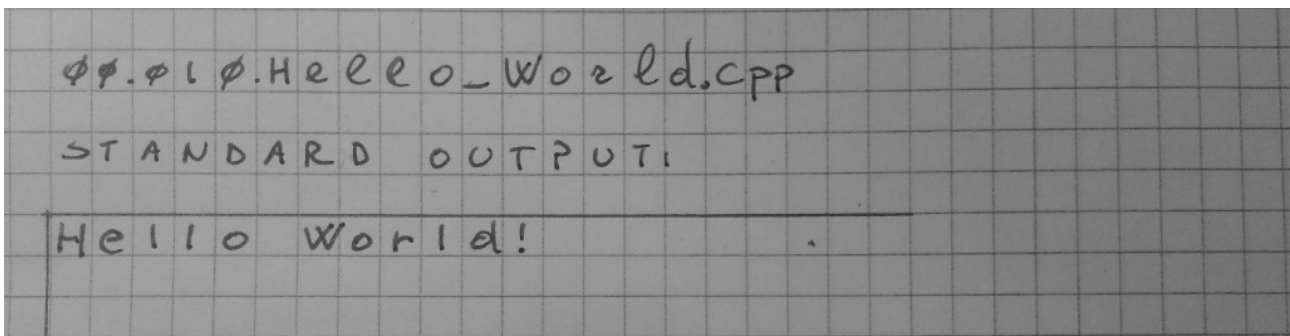 00.010.Hello_World.cpp
STANDARD OUTPUT:
Hello World!